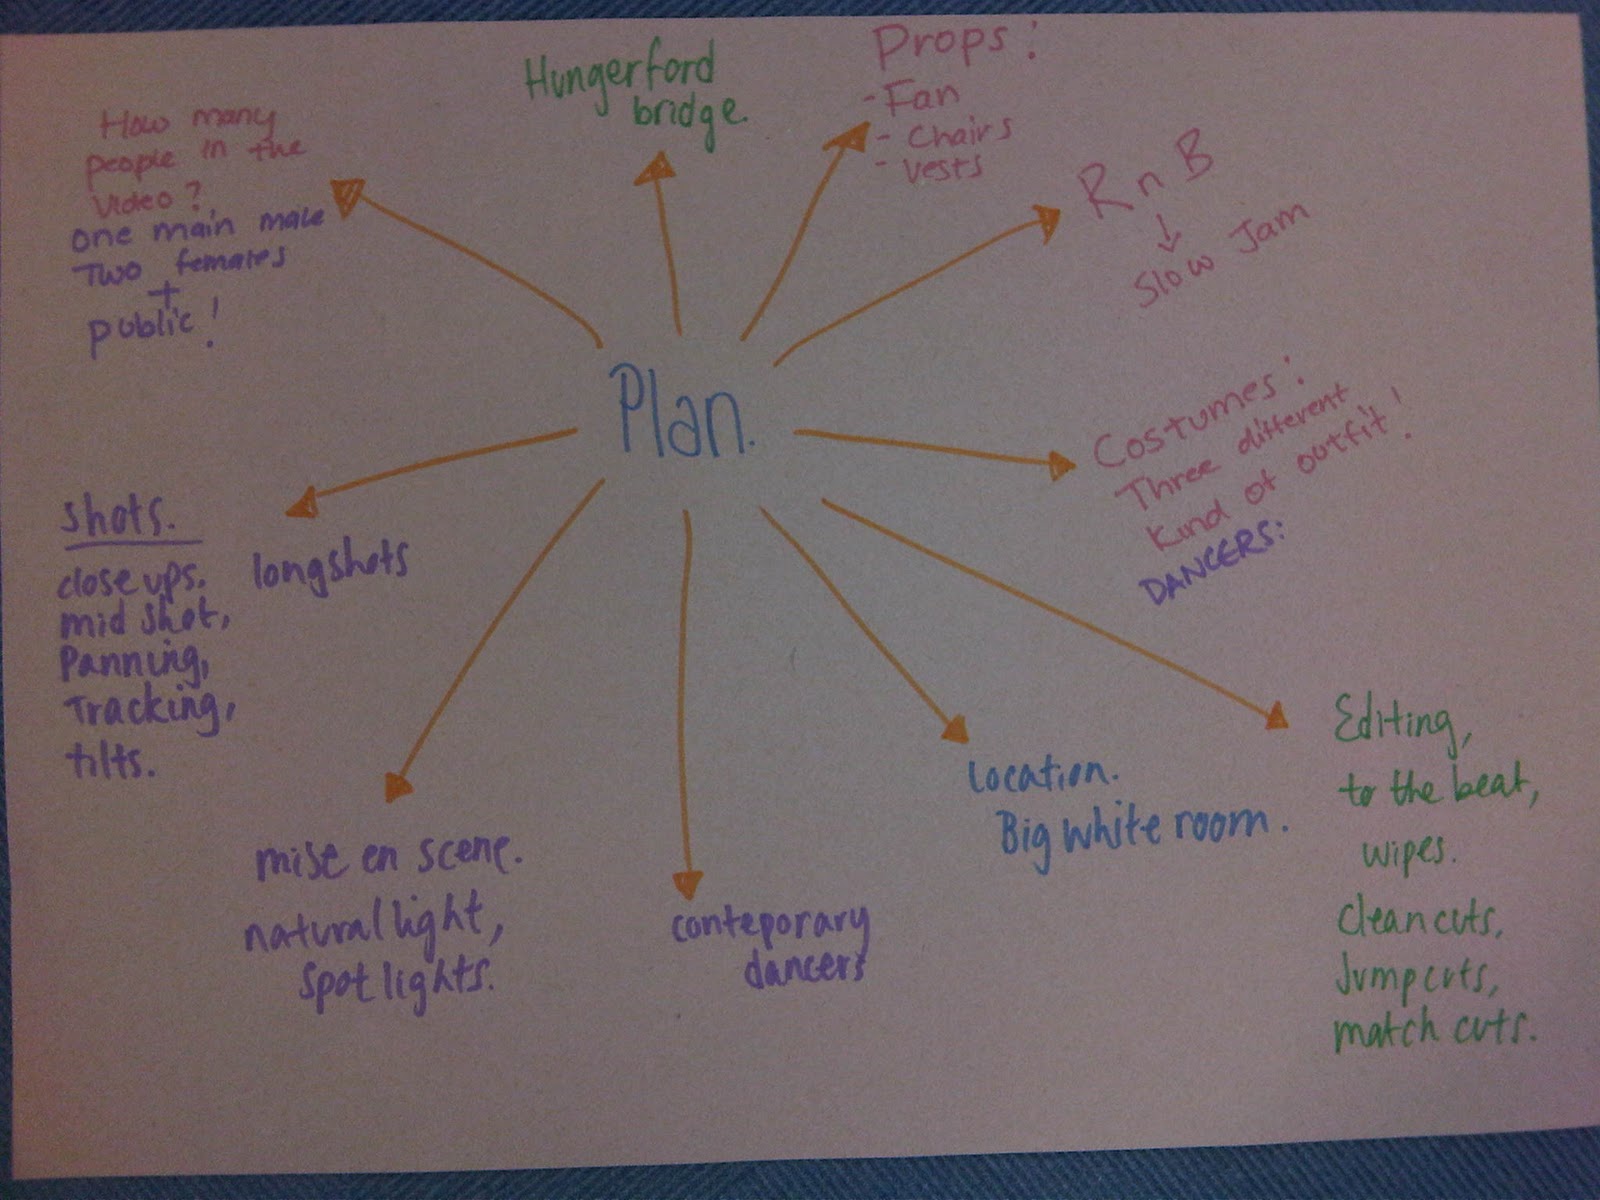 Plan.
How many
people in the
video?
one main male
Two females
+
public!
Hungerford
bridge.
Props:
- Fan
- Chairs
- Vests
R n B
↓
Slow Jam
Costumes:
Three different
kind of outfit!
DANCERS:
Editing,
to the beat,
wipes.
Clean cuts,
Jumpcuts,
match cuts.
Location.
Big white room.
conteporary
dancers
mise en scene.
natural light,
spot lights.
shots.
close ups. longshots
mid shot,
Panning,
Tracking,
tilts.